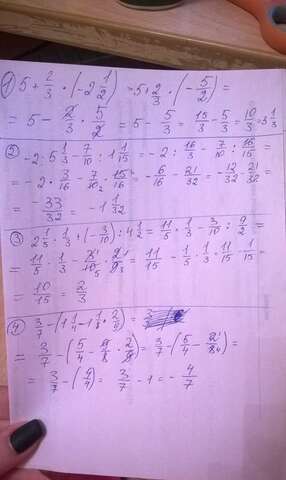 1) 5 + 2/3 · (-2 1/2) = 5 + 2/3 · (- 5/2) =
= 5 - 2/3 · 5/2 = 5 - 5/3 = 15/3 - 5/3 = 10/3 = 3 1/3
2) -2 : 5 1/3 - 7/10 : 1 1/15 = -2 : 16/3 - 7/10 : 16/15 =
= -2 · 3/16 - 7/10 · 15/16 = - 6/16 - 21/32 = - 12/32 - 21/32 =
= - 33/32 = -1 1/32
3) 2 1/5 · 1/3 + (- 3/10) : 4 1/2 = 11/5 · 1/3 - 3/10 : 9/2 =
= 11/5 · 1/3 - 3/10 · 2/9 = 11/15 - 1/5 · 1/3 = 11/15 - 1/15 =
= 10/15 = 2/3
4) 3/7 - (1 1/4 - 1 1/8 · 2/9) =
= 3/7 - (5/4 - 9/8 · 2/9) = 3/7 - (5/4 - 2/8) =
= 3/7 - (4/4) = 3/7 - 1 = - 4/7